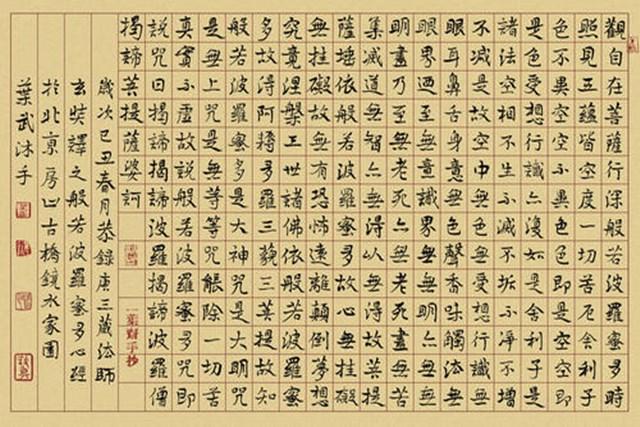 觀自在菩薩行深般若波羅蜜多時
照見五蘊皆空度一切苦厄舍利子
色不異空空不異色色即是空空即
是色受想行識亦復如是舍利子是
諸法空相不生不滅不垢不淨不增
不減是故空中無色無受想行識無
眼耳鼻舌身意無色聲香味觸法無
眼界乃至無意識界無無明亦無無
明盡乃至無老死亦無老死盡無苦
集滅道無智亦無得以無得故菩提
薩埵依般若波羅蜜多故心無挂礙
無挂礙故無有恐怖遠離顛倒夢想
究竟涅槃三世諸佛依般若波羅蜜
多故得阿耨多羅三藐三菩提故知
般若波羅蜜多是大神咒是大明咒
是無上咒是無等等咒能除一切苦
真實不虛故說般若波羅蜜多咒即
說咒曰揭諦揭諦波羅揭諦波羅僧
揭諦菩提薩婆訶
歲次己丑春月恭錄唐三藏法師
玄奘譯之般若波羅蜜多心經
於北京房山古橋鏡水家園
葉武沐手